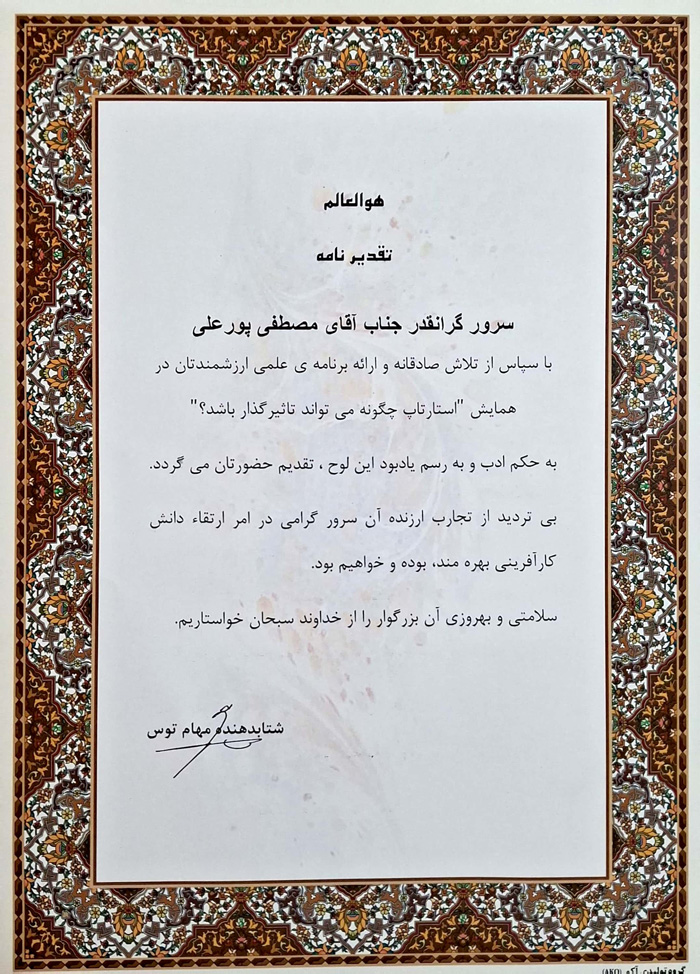 هوالعالم
تقدیر نامه
سرور گرانقدر جناب آقای مصطفی پورعلی
با سپاس از تلاش صادقانه و ارائه برنامه ی علمی ارزشمندتان در
همایش "استارتاپ چگونه می تواند تاثیرگذار باشد؟"
به حکم ادب و به رسم یادبود این لوح ، تقدیم حضورتان می گردد.
بی تردید از تجارب ارزنده آن سرور گرامی در امر ارتقاء دانش
کارآفرینی بهره مند، بوده و خواهیم بود.
سلامتی و بهروزی آن بزرگوار را از خداوند سبحان خواستاریم.
شتابدهنده مهام توس
گروه تولیدی آکو (AKO)